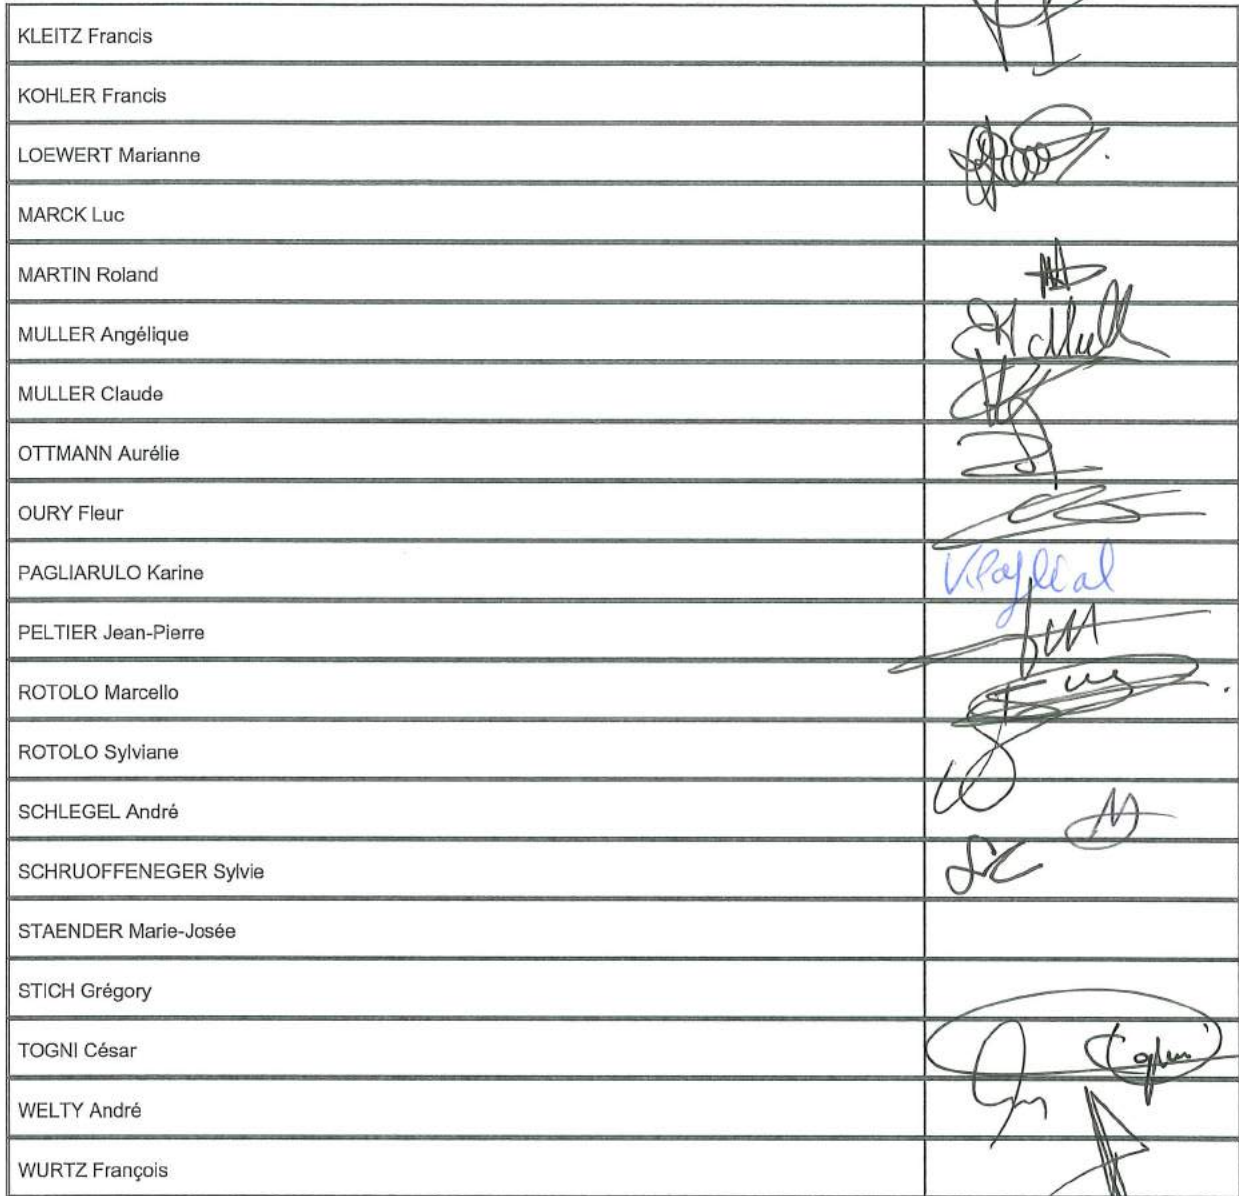 KLEITZ Francis
KOHLER Francis
LOEWERT Marianne
MARCK Luc
MARTIN Roland
MULLER Angélique
MULLER Claude
OTTMANN Aurélie
OURY Fleur
PAGLIARULO Karine
PELTIER Jean-Pierre
ROTOLO Marcello
ROTOLO Sylviane
SCHLEGEL André
SCHRUOFFENEGER Sylvie
STAENDER Marie-Josée
STICH Grégory
TOGNI César
WELTY André
WURTZ François